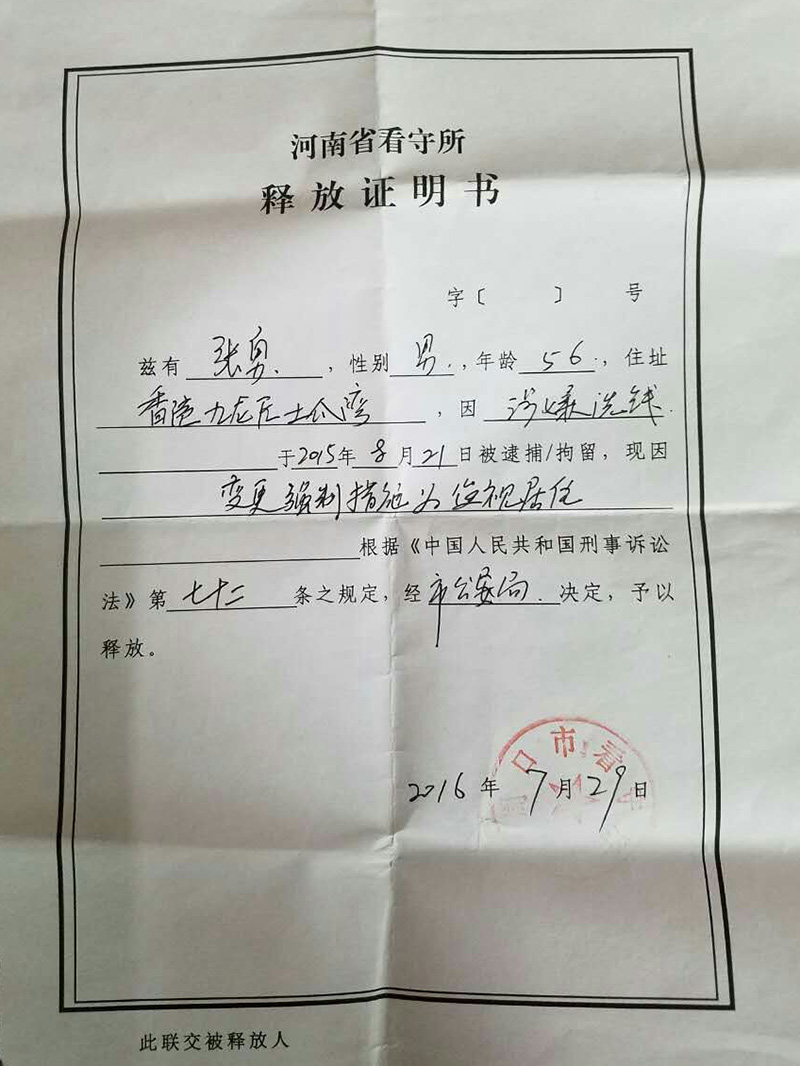 河南省看守所
释放证明书
字〔 〕 号
兹有 张勇 ，性别 男 ，年龄 56 ，住址
香港九龙区土瓜湾 ，因 涉嫌洗钱
于2015年8月21日被逮捕/拘留，现因
变更强制措施为监视居住
根据《中国人民共和国刑事诉讼
法》第 七十二 条之规定，经 市公安局 决定，予以
释放。
口市看
2016年7月29日
此联交被释放人